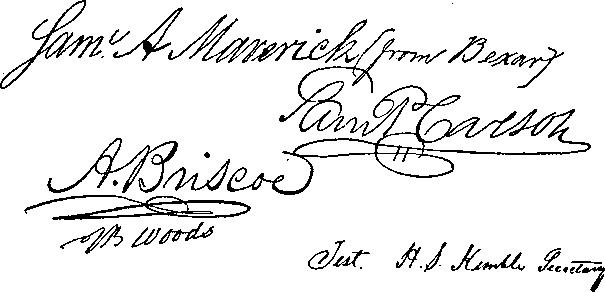 Saml A Maverick (from Bexar)
Sam P Carson
A. Briscoe
JB Woods
Test. H. S. Kimble Secretary